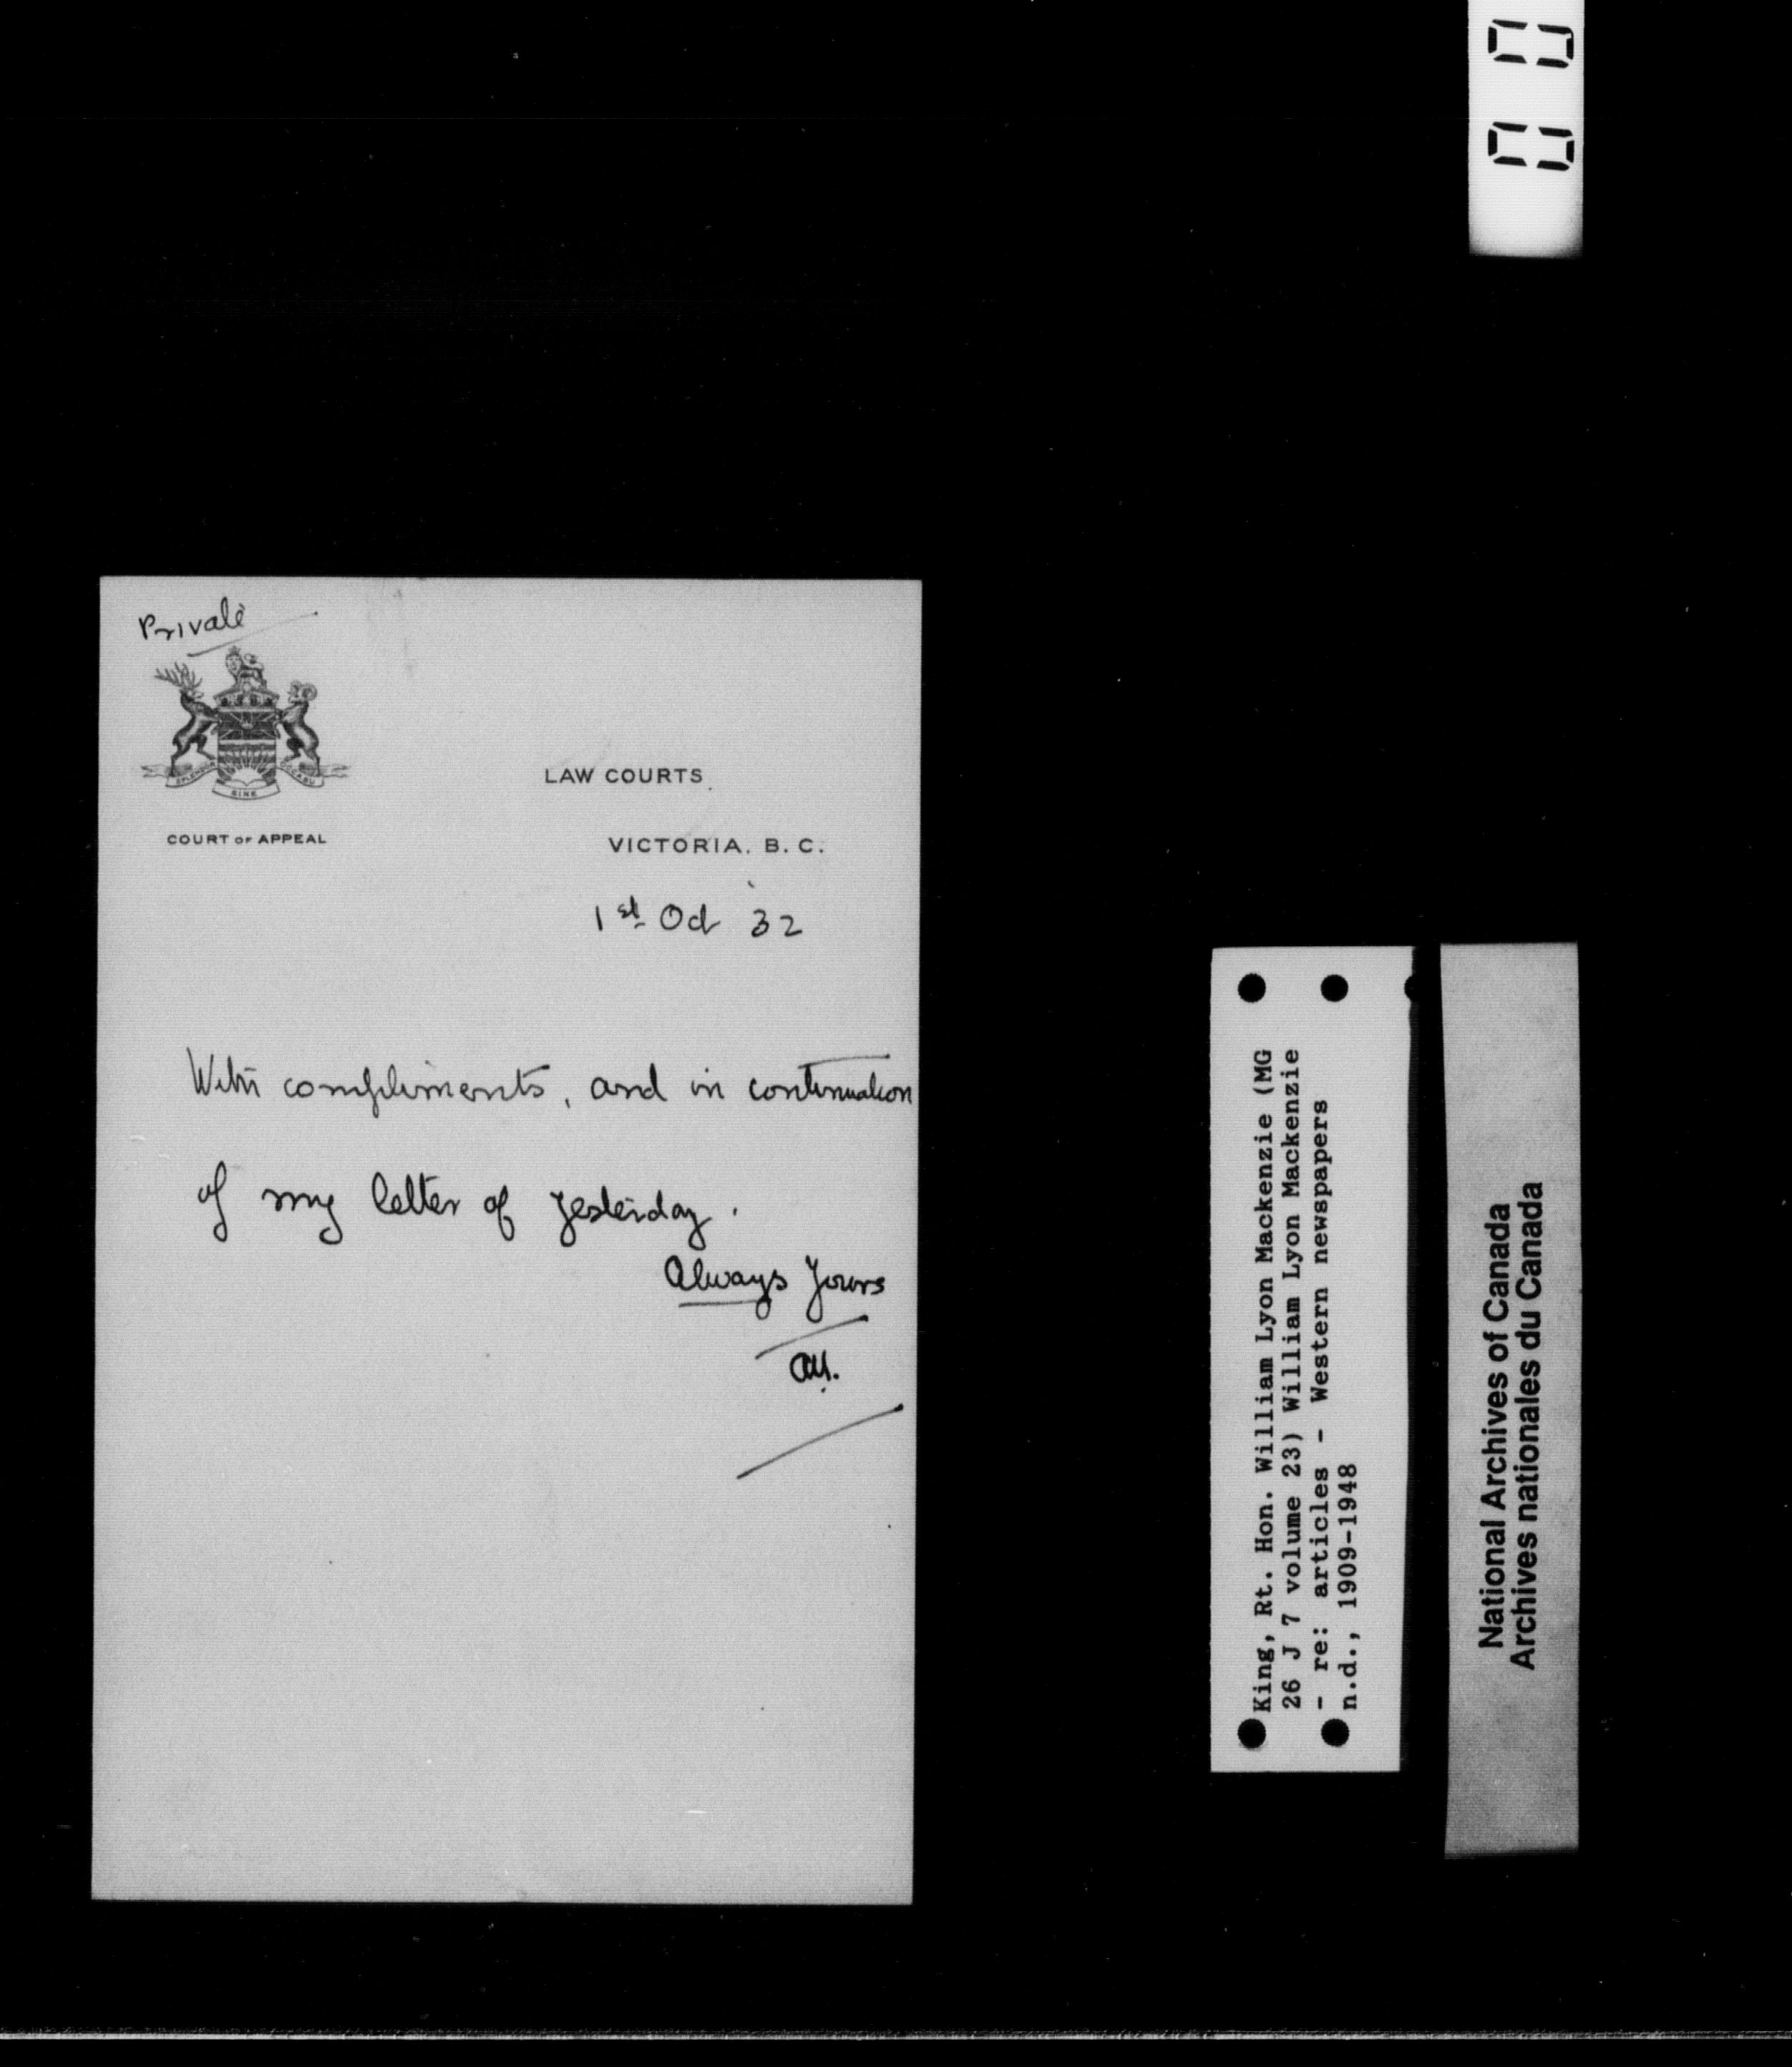 Private
SPLENDOR SINE OCCASU
COURT OF APPEAL
LAW COURTS
VICTORIA, B. C.
1st Oct 32
With compliments, and in continuation
of my letter of yesterday.
Always Yours
King, Rt. Hon. William Lyon Mackenzie (MG
26 J 7 volume 23) William Lyon Mackenzie
- re: articles - Western newspapers
n.d., 1909-1948
National Archives of Canada
Archives nationales du Canada